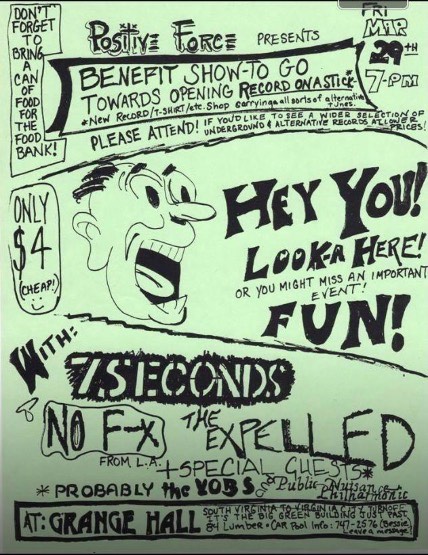 DON'T
FORGET
TO
BRING
A
CAN
OF
FOOD
FOR
THE
FOOD
BANK!
POSITIVE FORCE PRESENTS
FRI
MAR
29TH
7-PM
BENEFIT SHOW-TO GO
TOWARDS OPENING RECORD ON A STICK-
*NEW RECORD/T-SHIRT/etc. Shop carrying all sorts of alternative
TUNES.
PLEASE ATTEND! IF YOU'D LIKE TO SEE A WIDER SELECTION OF
UNDERGROUND & ALTERNATIVE RECORDS AT LOWER
PRICES!
ONLY
$4
(CHEAP!)
HEY YOU!
LOOK-A HERE!
OR YOU MIGHT MISS AN IMPORTANT
EVENT!
FUN!
WITH:
7SECONDS
NO F-X
FROM L.A.
THE
EXPELLED
+SPECIAL GUESTS*
* PROBABLY the YOBS & Public Nuisance
Philharmonic
AT: GRANGE HALL
SOUTH VIRGINIA TO VIRGINIA CITY TURNOFF
IT'S THE BIG GREEN BUILDING JUST PAST
84 Lumber • CAR POOL Info: 747-2576 (Bessie)
Leave a message)